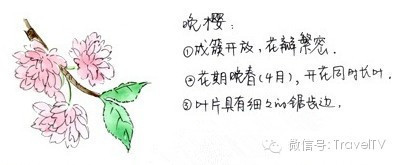 晚樱:
①成簇开放,花瓣繁密.
②花期晚春(4月),开花同时长叶.
③叶片具有细细的锯齿边.
微信号: TravelTV